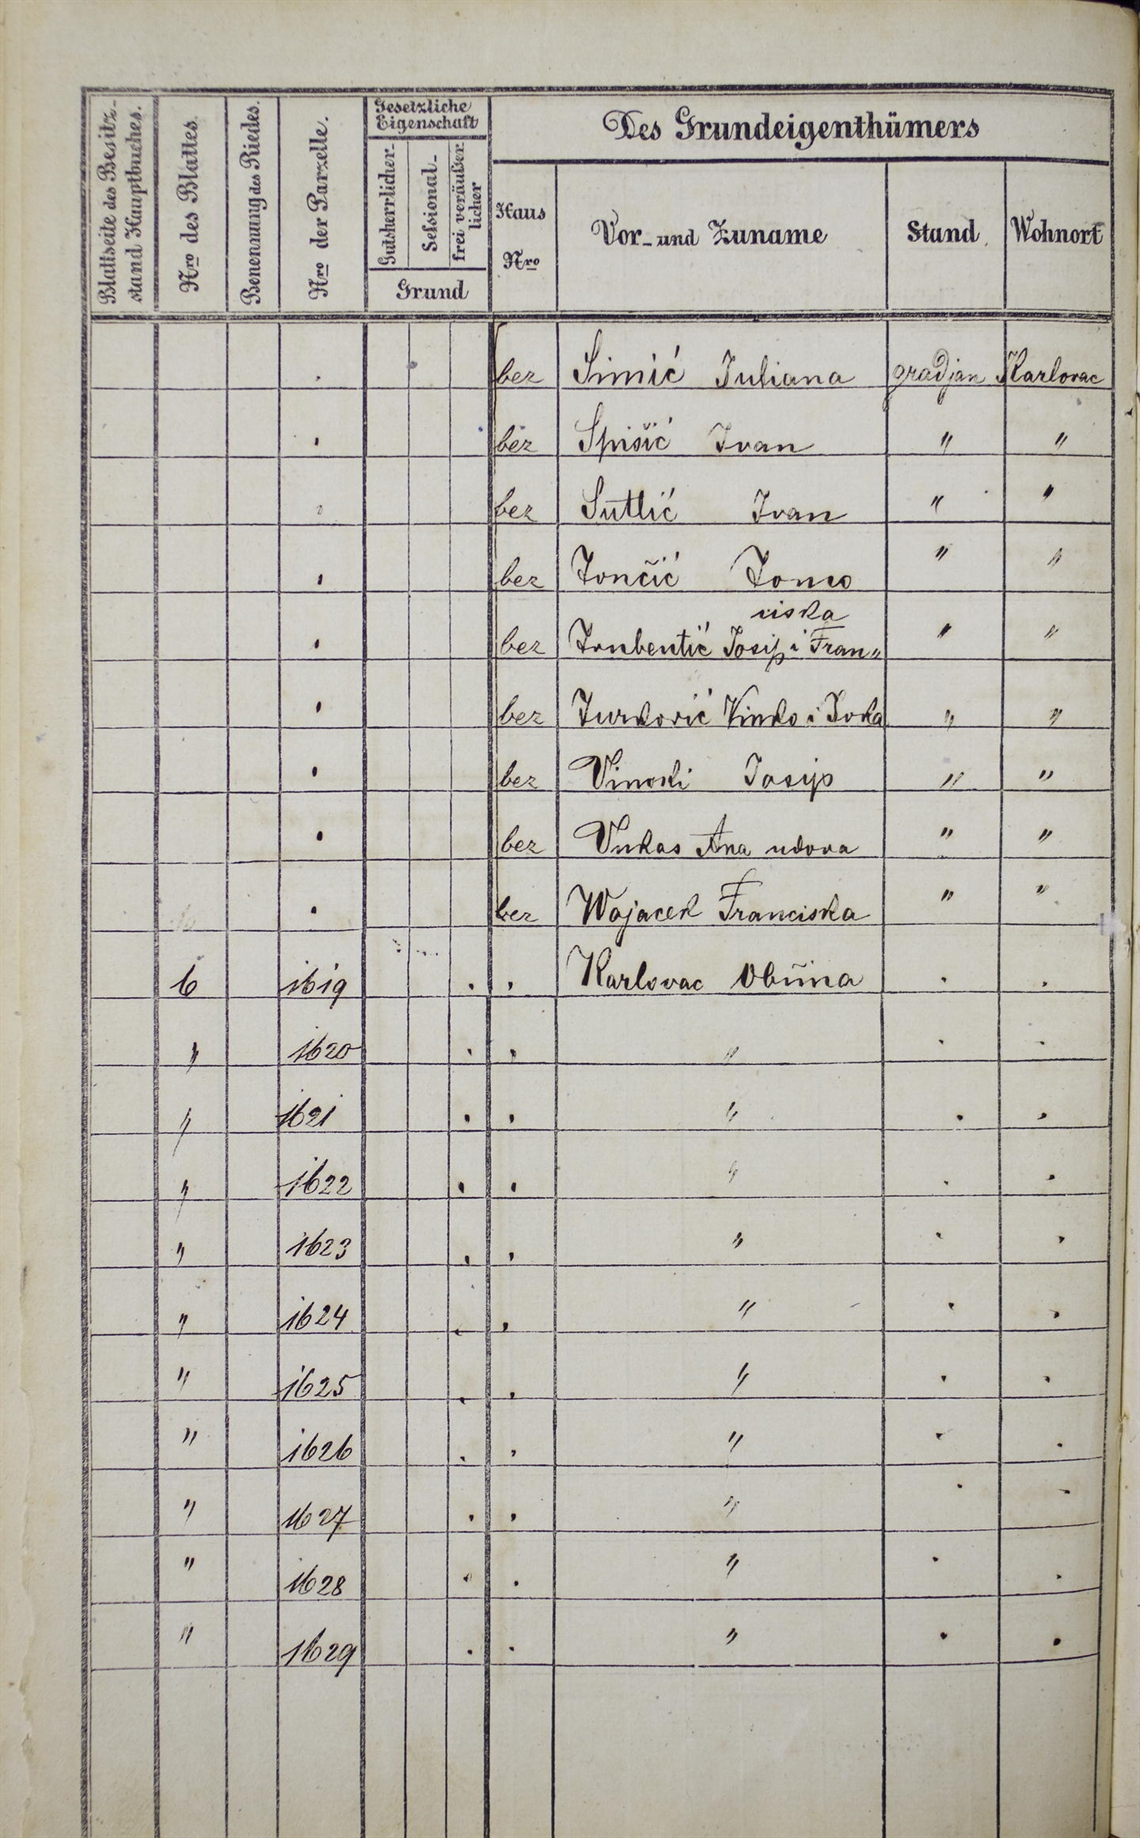 Blattseite des Besitz-
stand Hauptbuches.
Nro des Blattes.
Benennung des Riedes.
Nro der Parzelle.
Gesetzliche
Eigenschaft
Gutsherrlicher-
Sessional-
frei veräußer
licher
Grund
Des Grundeigenthümers
Haus
Nro
Vor- und Zuname
Stand
Wohnort
bez Simić Juliana gradjan Karlovac
bez Spišić Ivan " "
bez Sutlić Ivan " "
bez Tončić Tomo " "
ciska
bez Josip i Fran„ " "
bez Turković Vinko i " "
bez Josip " "
bez Vukas Ana udova " "
bez Wojacek Franciska " "
6 1619 . . Karlovac Obćina . .
" 1620 . . " . .
" 1621 . . " . .
" 1622 . . " . .
" 1623 . . " . .
" 1624 . . " . .
" 1625 . . " . .
" 1626 . . " . .
" 1627 . . " . .
" 1628 . . " . .
" 1629 . . " . .